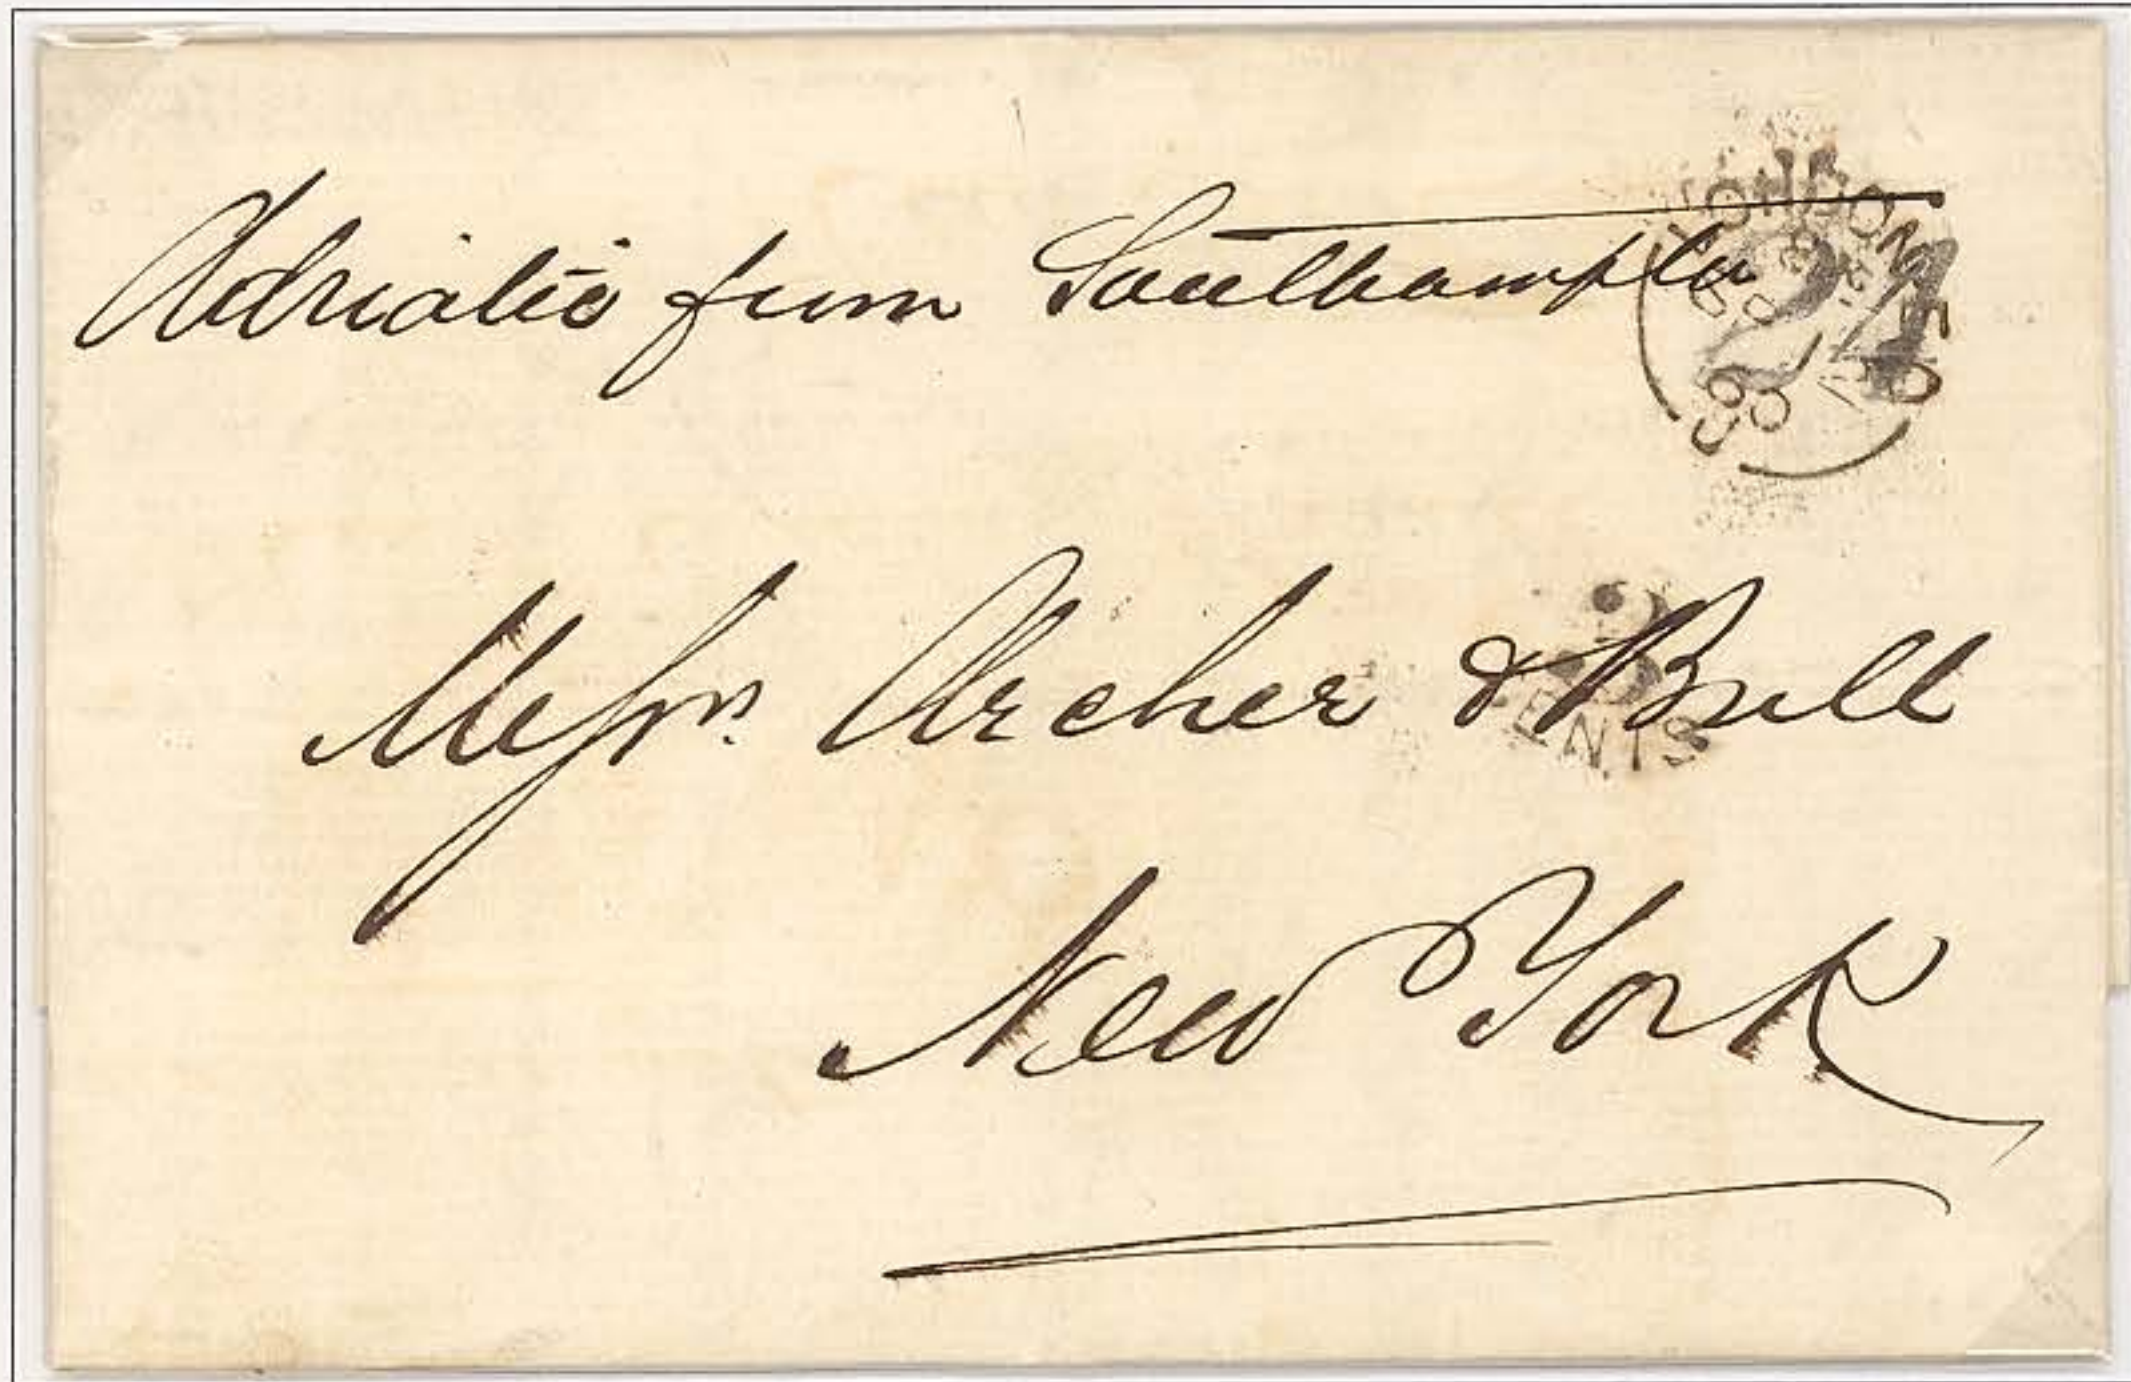 Adriatic from Southampton
LONDON
60
Messrs. Archer & Bull
3
CENTS
New York